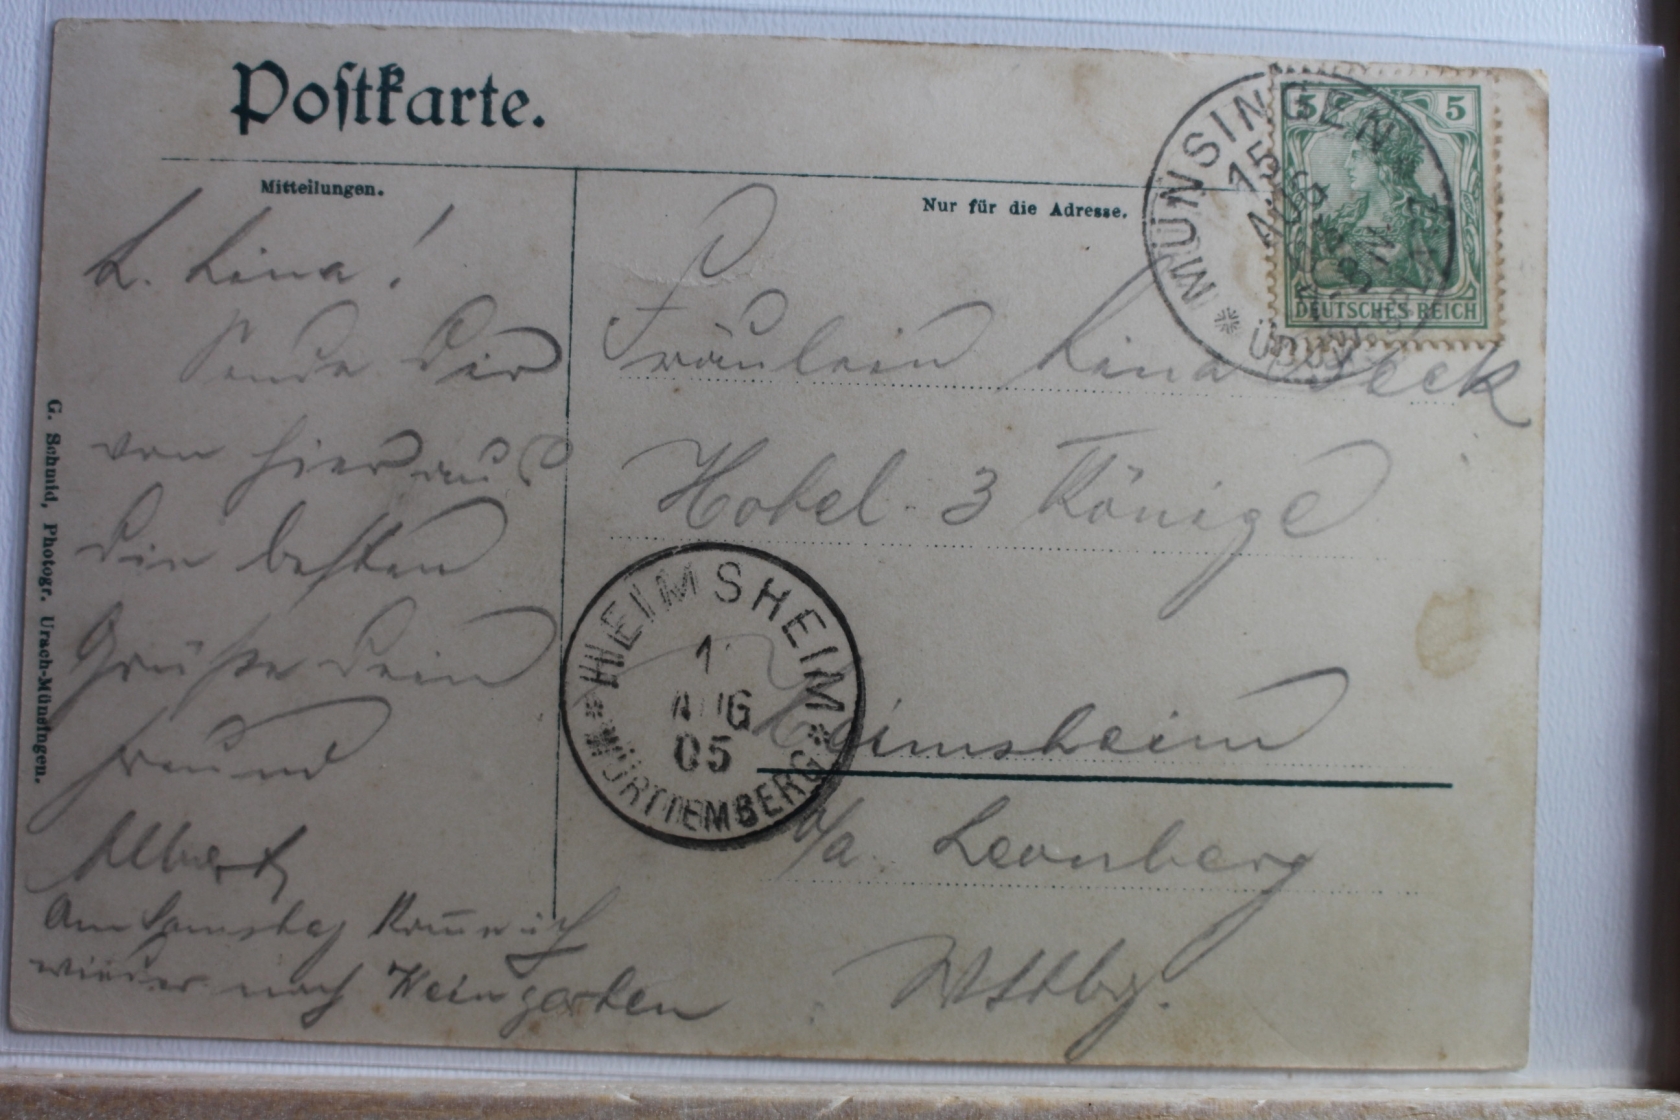 Postkarte.
Mitteilungen.
Nur für die Adresse.
L. Lina!
Sende Dir
von hier aus
die besten
Grüße dein
Freund
Albert
Am Samstag kom̅e ich
wieder nach Weingarten
G. Schmid, Photogr. Urach-Münsingen.
Fräulein Lina
Hotel 3 Könige
Heimsheim
o/a. Leonberg
Wttbg.
MÜNSINGEN
15
AUG
5
5
DEUTSCHES REICH
HEIMSHEIM
1
AUG
05
WÜRTTEMBERG